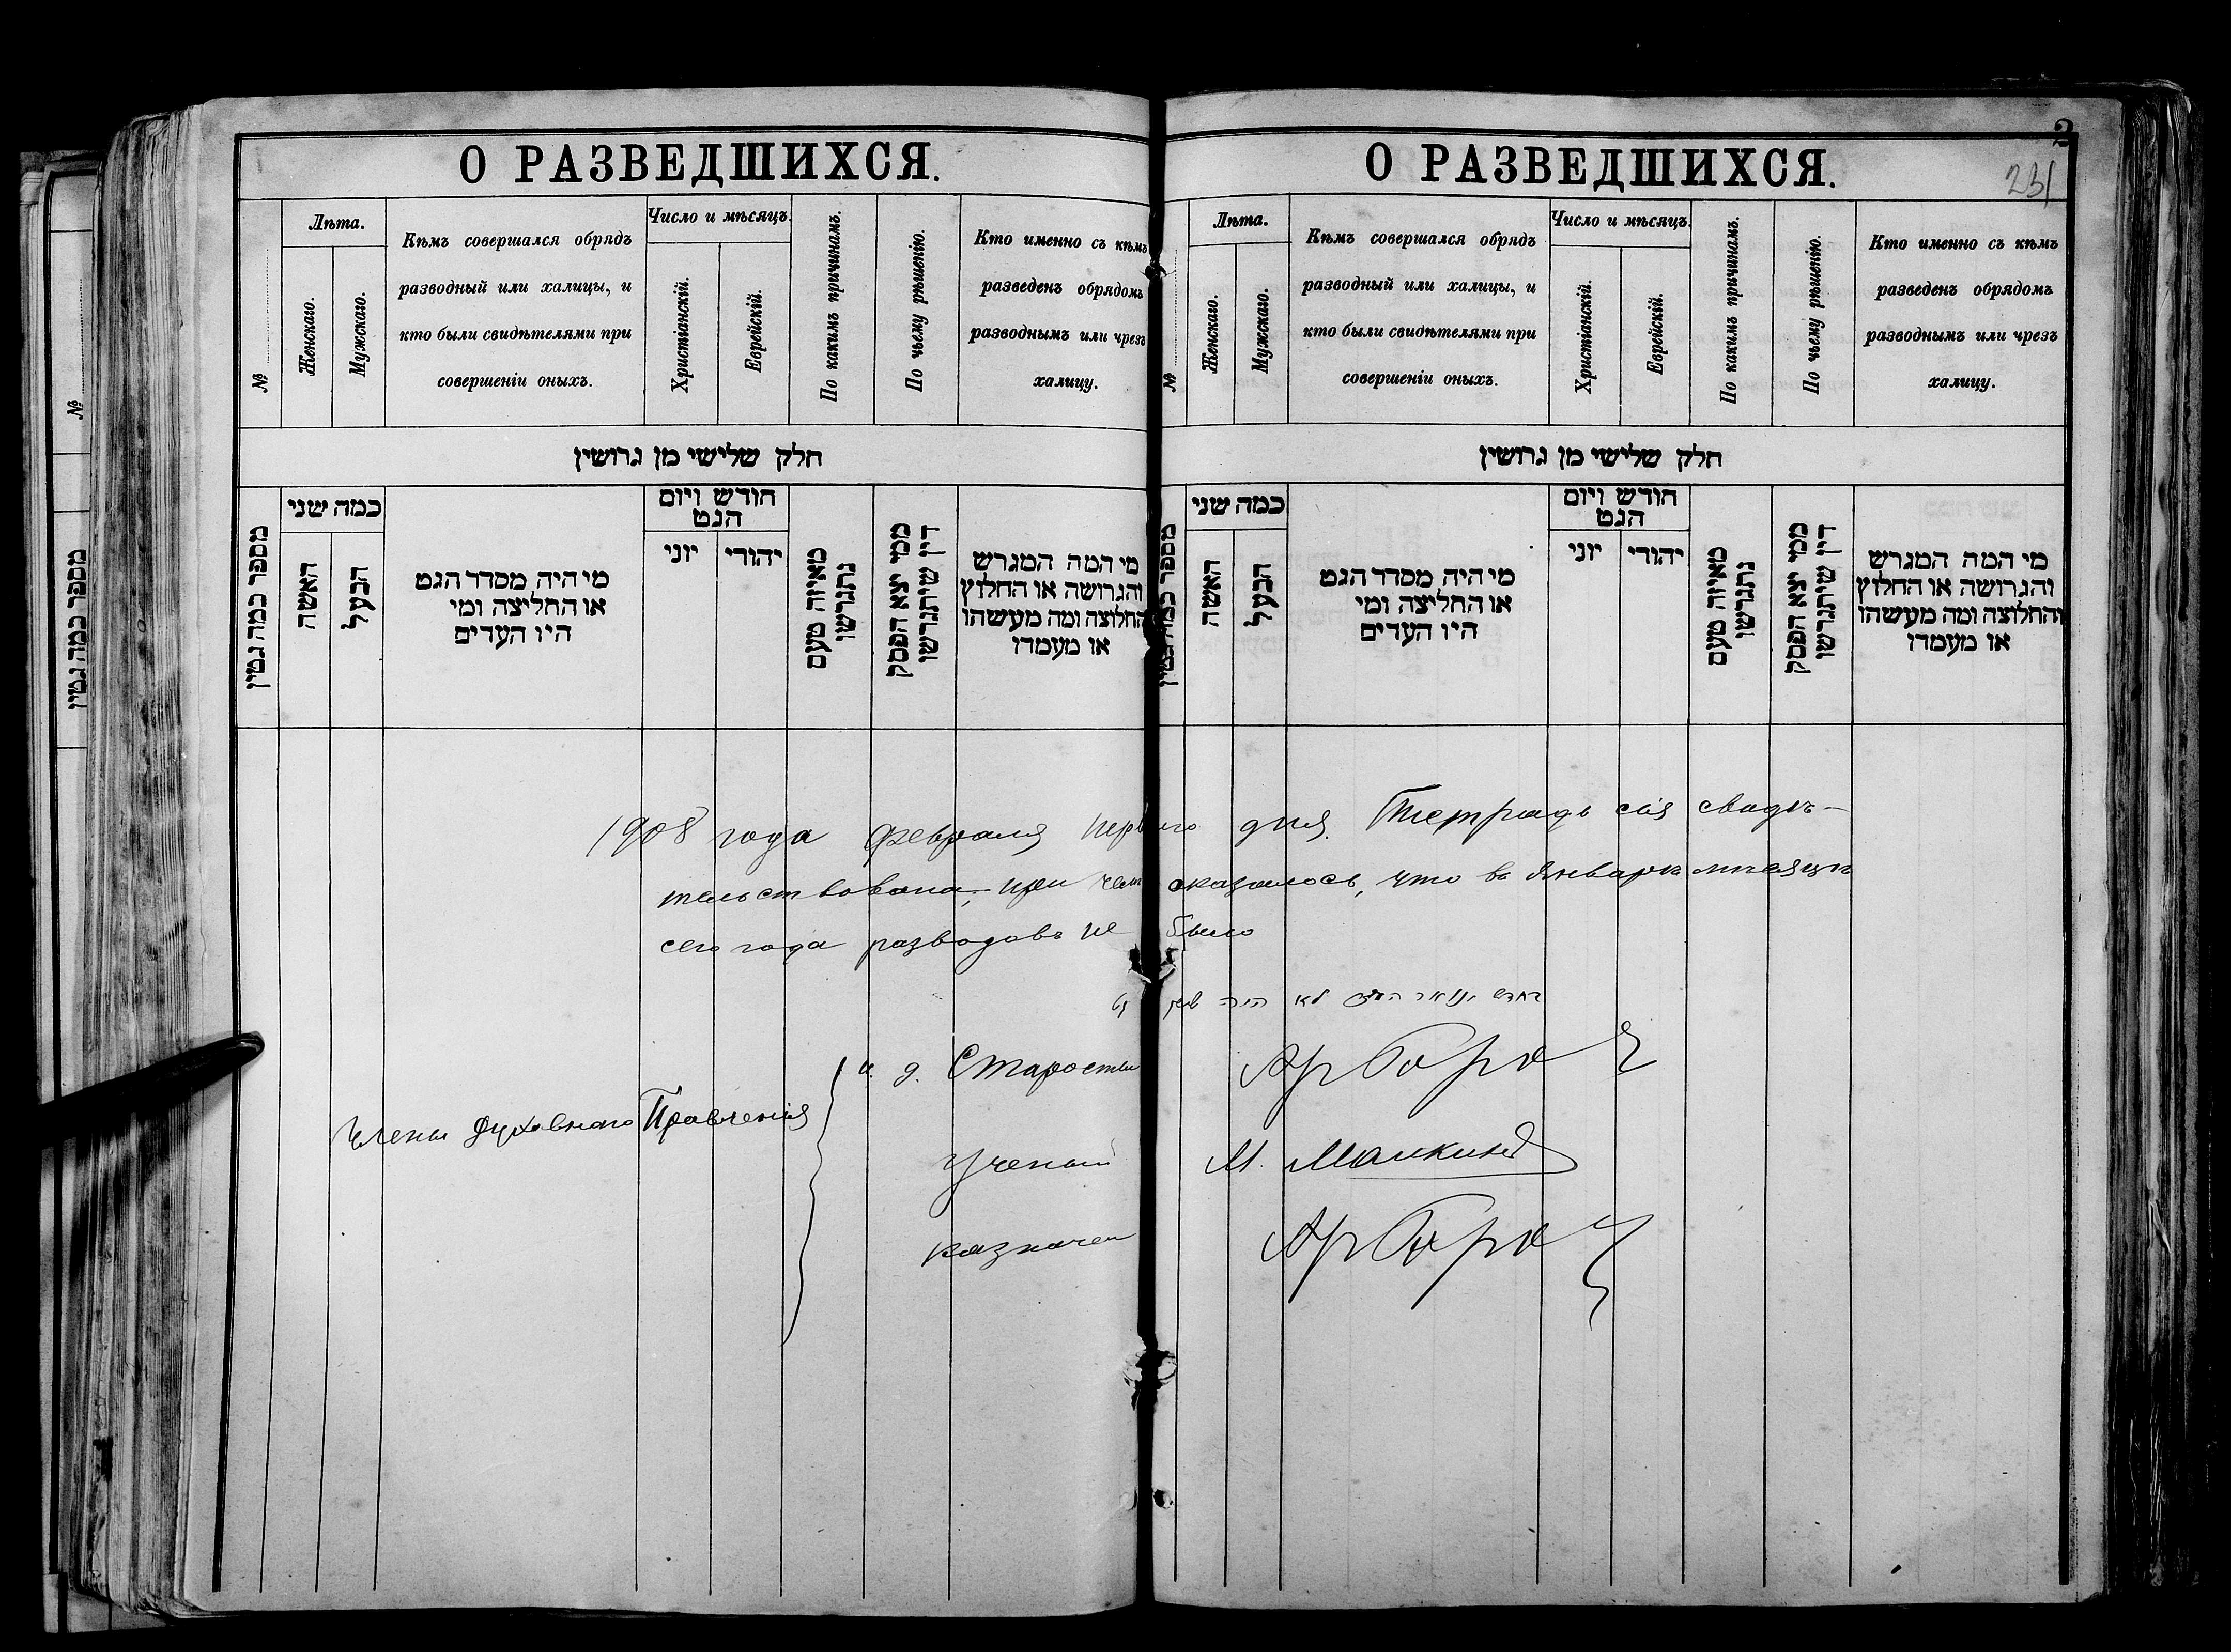 О РАЗВЕДШИХСЯ.
№
Лѣта.
Женскаго.
Мужскаго.
Кѣмъ совершался обрядъ
разводный или халицы, и
кто были свидѣтелями при
совершеніи оныхъ.
Число и мѣсяцъ.
Христіанскій.
Еврейскій.
По какимъ причинамъ.
По чьему рѣшенію.
Кто именно съ кѣмъ
разведенъ обрядомъ
разводнымъ или чрезъ
халицу.
חלק שלישי מן גרושין
מספר כמה גטין
כמה שני
האשה
הבעל
מי היה מסדר הגט
או החליצה ומי
היו העדים
חודש ויום
הגט
יוני
יהודי
מאיזה טעם
נתגרשו
ממי יצא הפסק
דין שיתגרשו
מי המה המגרש
והגרושה או החלוץ
והחלוצה ומה מעשהו
או מעמדו
2
231
О РАЗВЕДШИХСЯ.
№
Лѣта.
Женскаго.
Мужскаго.
Кѣмъ совершался обрядъ
разводный или халицы, и
кто были свидѣтелями при
совершеніи оныхъ.
Число и мѣсяцъ.
Христіанскій.
Еврейскій.
По какимъ причинамъ.
По чьему рѣшенію.
Кто именно съ кѣмъ
разведенъ обрядомъ
разводнымъ или чрезъ
халицу.
חלק שלישי מן גרושין
מספר כמה גטין
כמה שני
האשה
הבעל
מי היה מסדר הגט
או החליצה ומי
היו העדים
חודש ויום
הגט
יוני
יהודי
מאיזה טעם
נתגרשו
ממי יצא הפסק
דין שיתגרשו
מי המה המגרש
והגרושה או החלוץ
והחלוצה ומה מעשהו
או מעמדו
1908 года Февраля первого дня. Тетрадь сія свидѣ-
тельствована, при чем оказалось, что въ Январѣ мѣсяцѣ
сего года разводовъ не было
לא היה
Члены Духовнаго Правленія
и. д. Старосты
Ученый М.
казначей
№
מספר כמה גטין